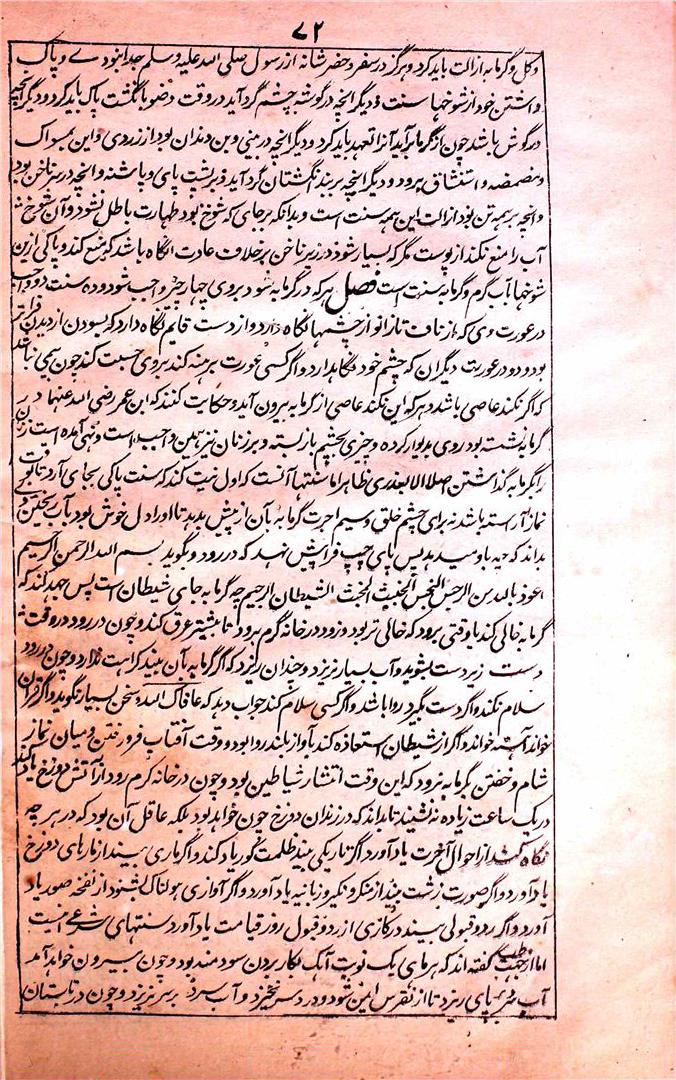 ۷۲
و گل و گرمابه ازالت باید کرد و هرگز در سفر و حضر شانه از رسول صلی الله علیه و سلم جدا نبودے و پاک
داشتن خود از شوخها سنت و دیگر انچه در گوشه چشم گرد آید در وقت وضو بانگشت پاک باید کرد و دیگر انچه
در گوش باشد چون از گرمابه برآید آنرا تعهد باید کرد و دیگر انچه در بینی و بن دندان بود از زردی و این بمسواک
و مضمضه و استنشاق برود و دیگر انچه بر بند انگشتان گرد آید و بر پشت پای و پاشنه و انچه در سر ناخن بود
و انچه بر همه تن بود ازالت این همه سنت است و بدانکه بر جای که شوخ بود طهارت باطل نشود و آن شوخ
آب را منع نکند از پوست مگر که بسیار شود در زیر ناخن بر خلاف عادت انگاه باشد که منع کند و پاکی ازین
شوخها بآب گرم و گرمابه سنت است فصل هر که در گرمابه شود بروی چهار چیز واجب شود و ده سنت دو واجب
در عورت وی که از ناف تا زانو از چشمها نگاه دارد و از دست قایم نگاه دارد که بسودن از دیدن فراتر
بود و دو در عورت دیگران که چشم خود نگاهدارد و اگر کسی عورت برهنه کند بروی حسبت کند چون بیمی نباشد
که اگر نکند عاصی باشد و هر که این نکند عاصی از گرمابه بیرون آید و حکایت کنند که ابن عمر رضی الله عنهما در
گرمابه نشسته بود روی بدیوار کرده و چیزی بچشم باز بسته و بر زنان نیز همین واجب است و نهی آمده است زن
را بگرمابه گذاشتن اصلا الا بعذری ظاهر اما سنتها آنست که اول نیت کند که سنت پاکی بجای آرد تا بوقت
نماز آراسته باشد نه برای چشم خلق و سیم اجرت گرمابه بان از پیش بدهد تا او را دل خوش بود بآب ریختن
بداند که چه باو میدهد پس پای چپ فرا پیش نهد که در رود و بگوید بسم الله الرحمن الرحیم
اعوذ بالله من الرجس النجس الخبیث المخبث الشیطان الرجیم چه گرمابه جای شیطان است پس جهد کند که
گرمابه خالی کند یا وقتی برود که خالی تر بود و زود در خانه گرم نرود تا بیشتر عرق کند و چون در رود در وقت
دست زیر دست بشوید و آب بسیار نریزد و چندان ریزد که اگر گرمابه بان بیند کراهت ندارد و چون در رود
سلام نکند و اگر دست بگیرد روا باشد و اگر کسی سلام کند جواب دهد که عافاک الله و سخن بسیار نگوید و اگر قرآن
خواند آهسته خواند و اگر از شیطان استعاذه کند بآواز بلند روا بود و وقت آفتاب فرو رفتن و میان نماز
شام و خفتن گرمابه نرود که این وقت انتشار شیاطین بود و چون در خانه گرم رود از آتش دوزخ یاد کند
در یک ساعت زیاده نه نشیند تا بداند که در زندان دوزخ چون خواهد بود بلکه عاقل آن بود که در هر چه
نگاه کند از احوال آخرت یاد آورد اگر تاریکی بیند ظلمت گور یاد کند و اگر ماری بیند از مارهای دوزخ
یاد آورد و اگر صورت زشت بیند از منکر و نکیر و زبانیه یاد آورد و اگر آوازی هولناک بشنود از نفخه صور یاد
آورد و اگر رد و قبولی بیند در کاری از رد و قبول روز قیامت یاد آورد سنتهای شرعی اینست
اما از جهت طب گفته اند که هر مای یک نوبت آهک بکار بردن سودمند بود و چون بیرون خواهد آمد
آب سرد بر پای ریزد تا از نقرس ایمن شود و درد سر نخیزد و آب سرد بر سر نریزد و چون در تابستان